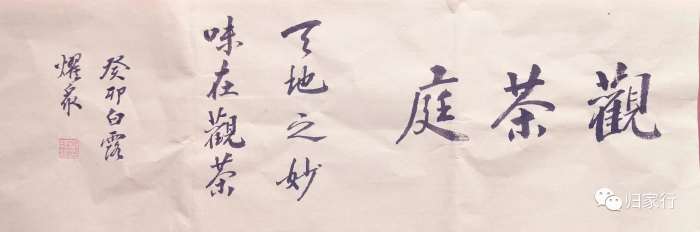 觀茶庭
天地之妙
味在觀茶
癸卯白露
燿泉
归家行